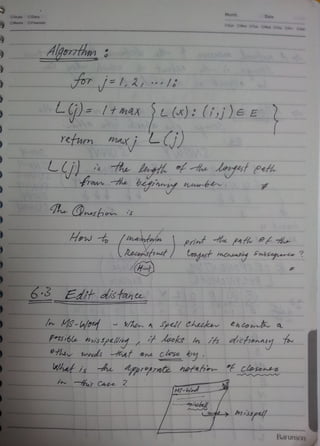 Month Date
Algorithm :
for j = 1, 2, ... 1:
L(j) = 1 + max { L(x) : (i, j) ∈ E }
return max j L(j)
L(j) is the length of the longest path
from the beginning number.
The Question is
How to (maintain Reconstruct) print the path of the
longest increasing subsequence ?
6.3 Edit distance
In MS-Word - when a spell checker encounter a
possible misspelling, it looks in its dictionary for
other words that are close by.
What is the appropriate notation of closeness
in this case ?
MS-Word
misspell
Barunson